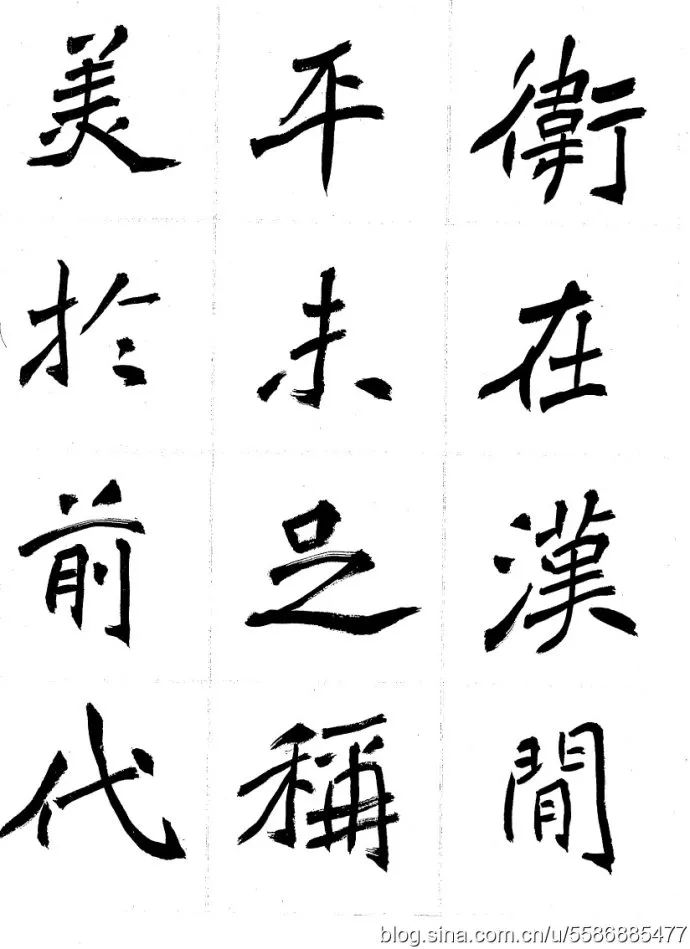 衛在漢閒
平未足稱
美於前代
blog.sina.com.cn/u/5586885477